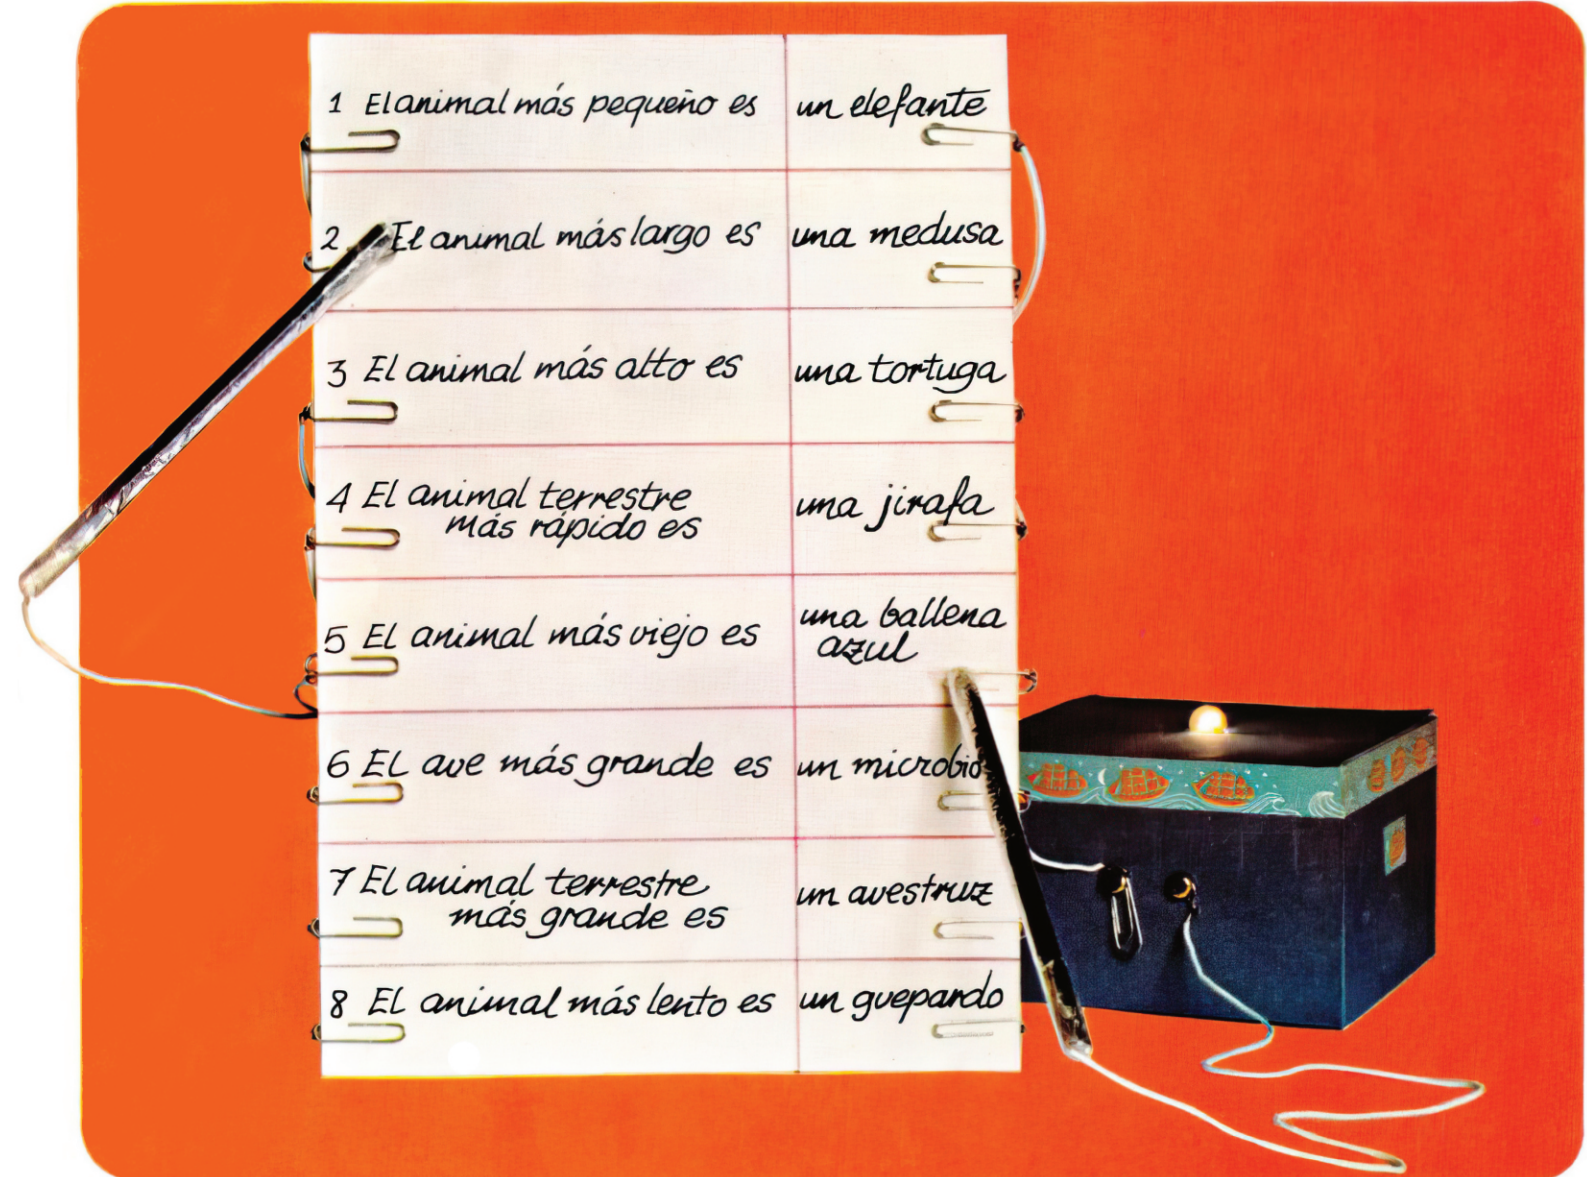 1 El animal más pequeño es un elefante
2 El animal más largo es una medusa
3 El animal más alto es una tortuga
4 El animal terrestre
más rápido es una jirafa
5 El animal más viejo es una ballena
azul
6 El ave más grande es un microbio
7 El animal terrestre
más grande es un avestruz
8 El animal más lento es un guepardo